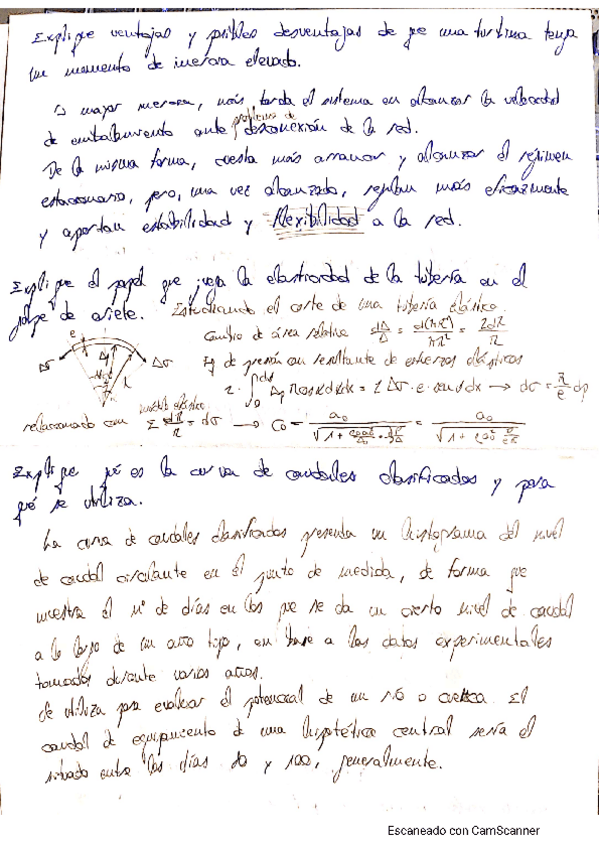 Explique ventajas y posibles desventajas de que una turbina tenga
un momento de inercia elevado.
mayor inercia, más tarda el sistema en alcanzar la velocidad
de embalamiento ante problema de desconexión de la red.
De la misma forma, cuesta más arrancar y alcanzar el régimen
estacionario, pero, una vez alcanzado, regulan más eficazmente
y aportan estabilidad y flexibilidad a la red.
Explique el papel que juega la elasticidad de la tubería en el
golpe de ariete. Estudiando el corte de una tubería elástica.
Cambio de área relativo dA/A = d(πR²)/πR² = 2dR/R
e
Δσ Δσ
Eq de presión con resultante de esfuerzos elásticos
→ dσ = R/e dp
relacionado con módulo elástico
Σ dR/R = dσ → C₀ =
Explique qué es la curva de caudales clasificados y para
qué se utiliza.
La curva de caudales clasificados presenta un histograma del nivel
de caudal circulante en el punto de medida, de forma que
muestra el nº de días en los que se da un cierto nivel de caudal
a lo largo de un año tipo, en base a los datos experimentales
tomados durante varios años.
Se utiliza para evaluar el potencial de un río o cuenca. El
caudal de equipamiento de una hipotética central sería el
situado entre los días 80 y 100, generalmente.
Escaneado con CamScanner